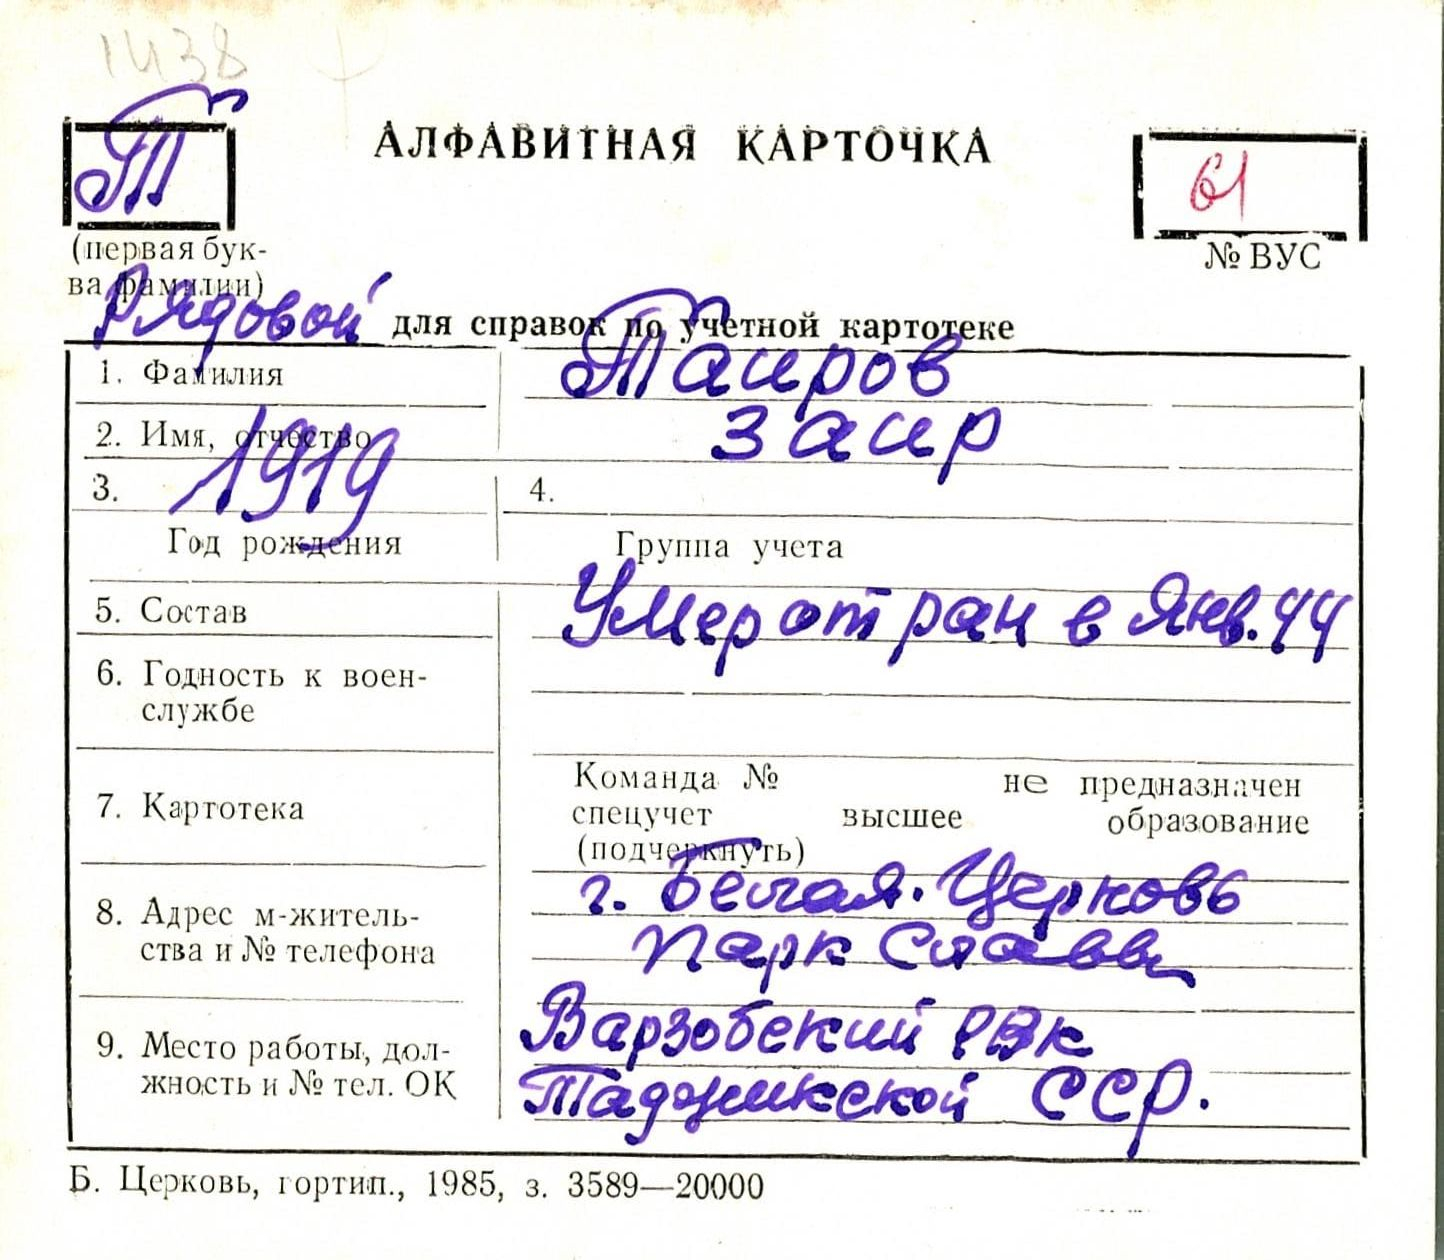 1438
Т
АЛФАВИТНАЯ КАРТОЧКА
61
(первая бук-
ва фамилии)
№ ВУС
Рядовой для справок по учетной картотеке
1. Фамилия Таиров
2. Имя, отчество Заир
3. 1919 4.
Год рождения Группа учета
5. Состав Умер от ран в Янв. 44
6. Годность к воен-
службе
7. Картотека
Команда № не предназначен
спецучет высшее образование
(подчеркнуть)
8. Адрес м-житель-
ства и № телефона
г. Белая. Церковь
парк Славы
9. Место работы, дол-
жность и № тел. ОК
Варзобский РВК
Таджикской ССР.
Б. Церковь, гортип., 1985, з. 3589—20000